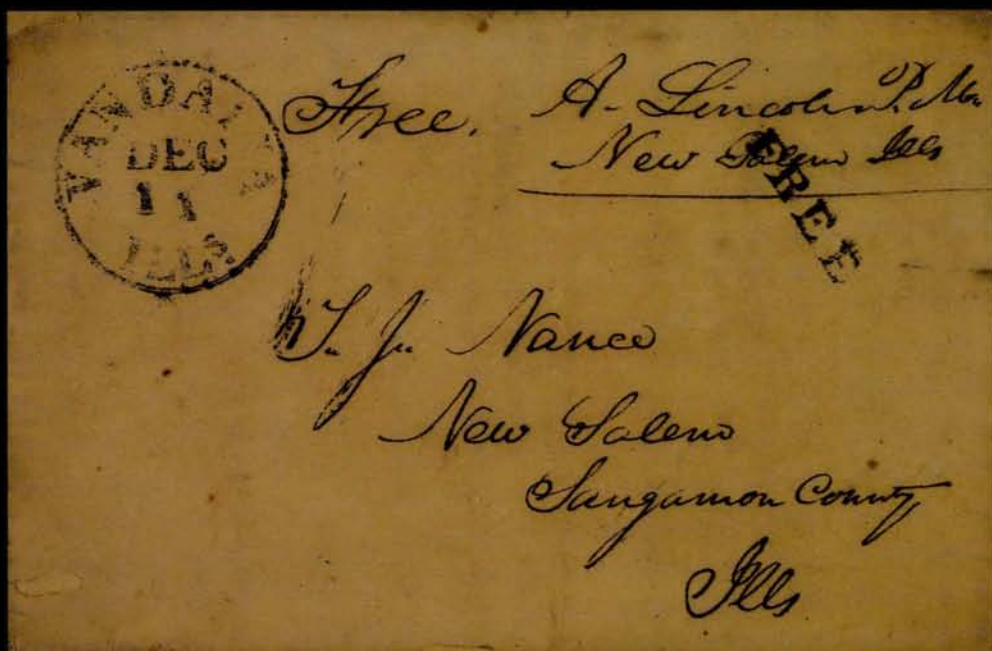 VANDALIA
DEC
11
ILLS.
Free. A. Lincoln P. M.
New Salem Ills
FREE
T. J. Nance
New Salem
Sangamon County
Ills